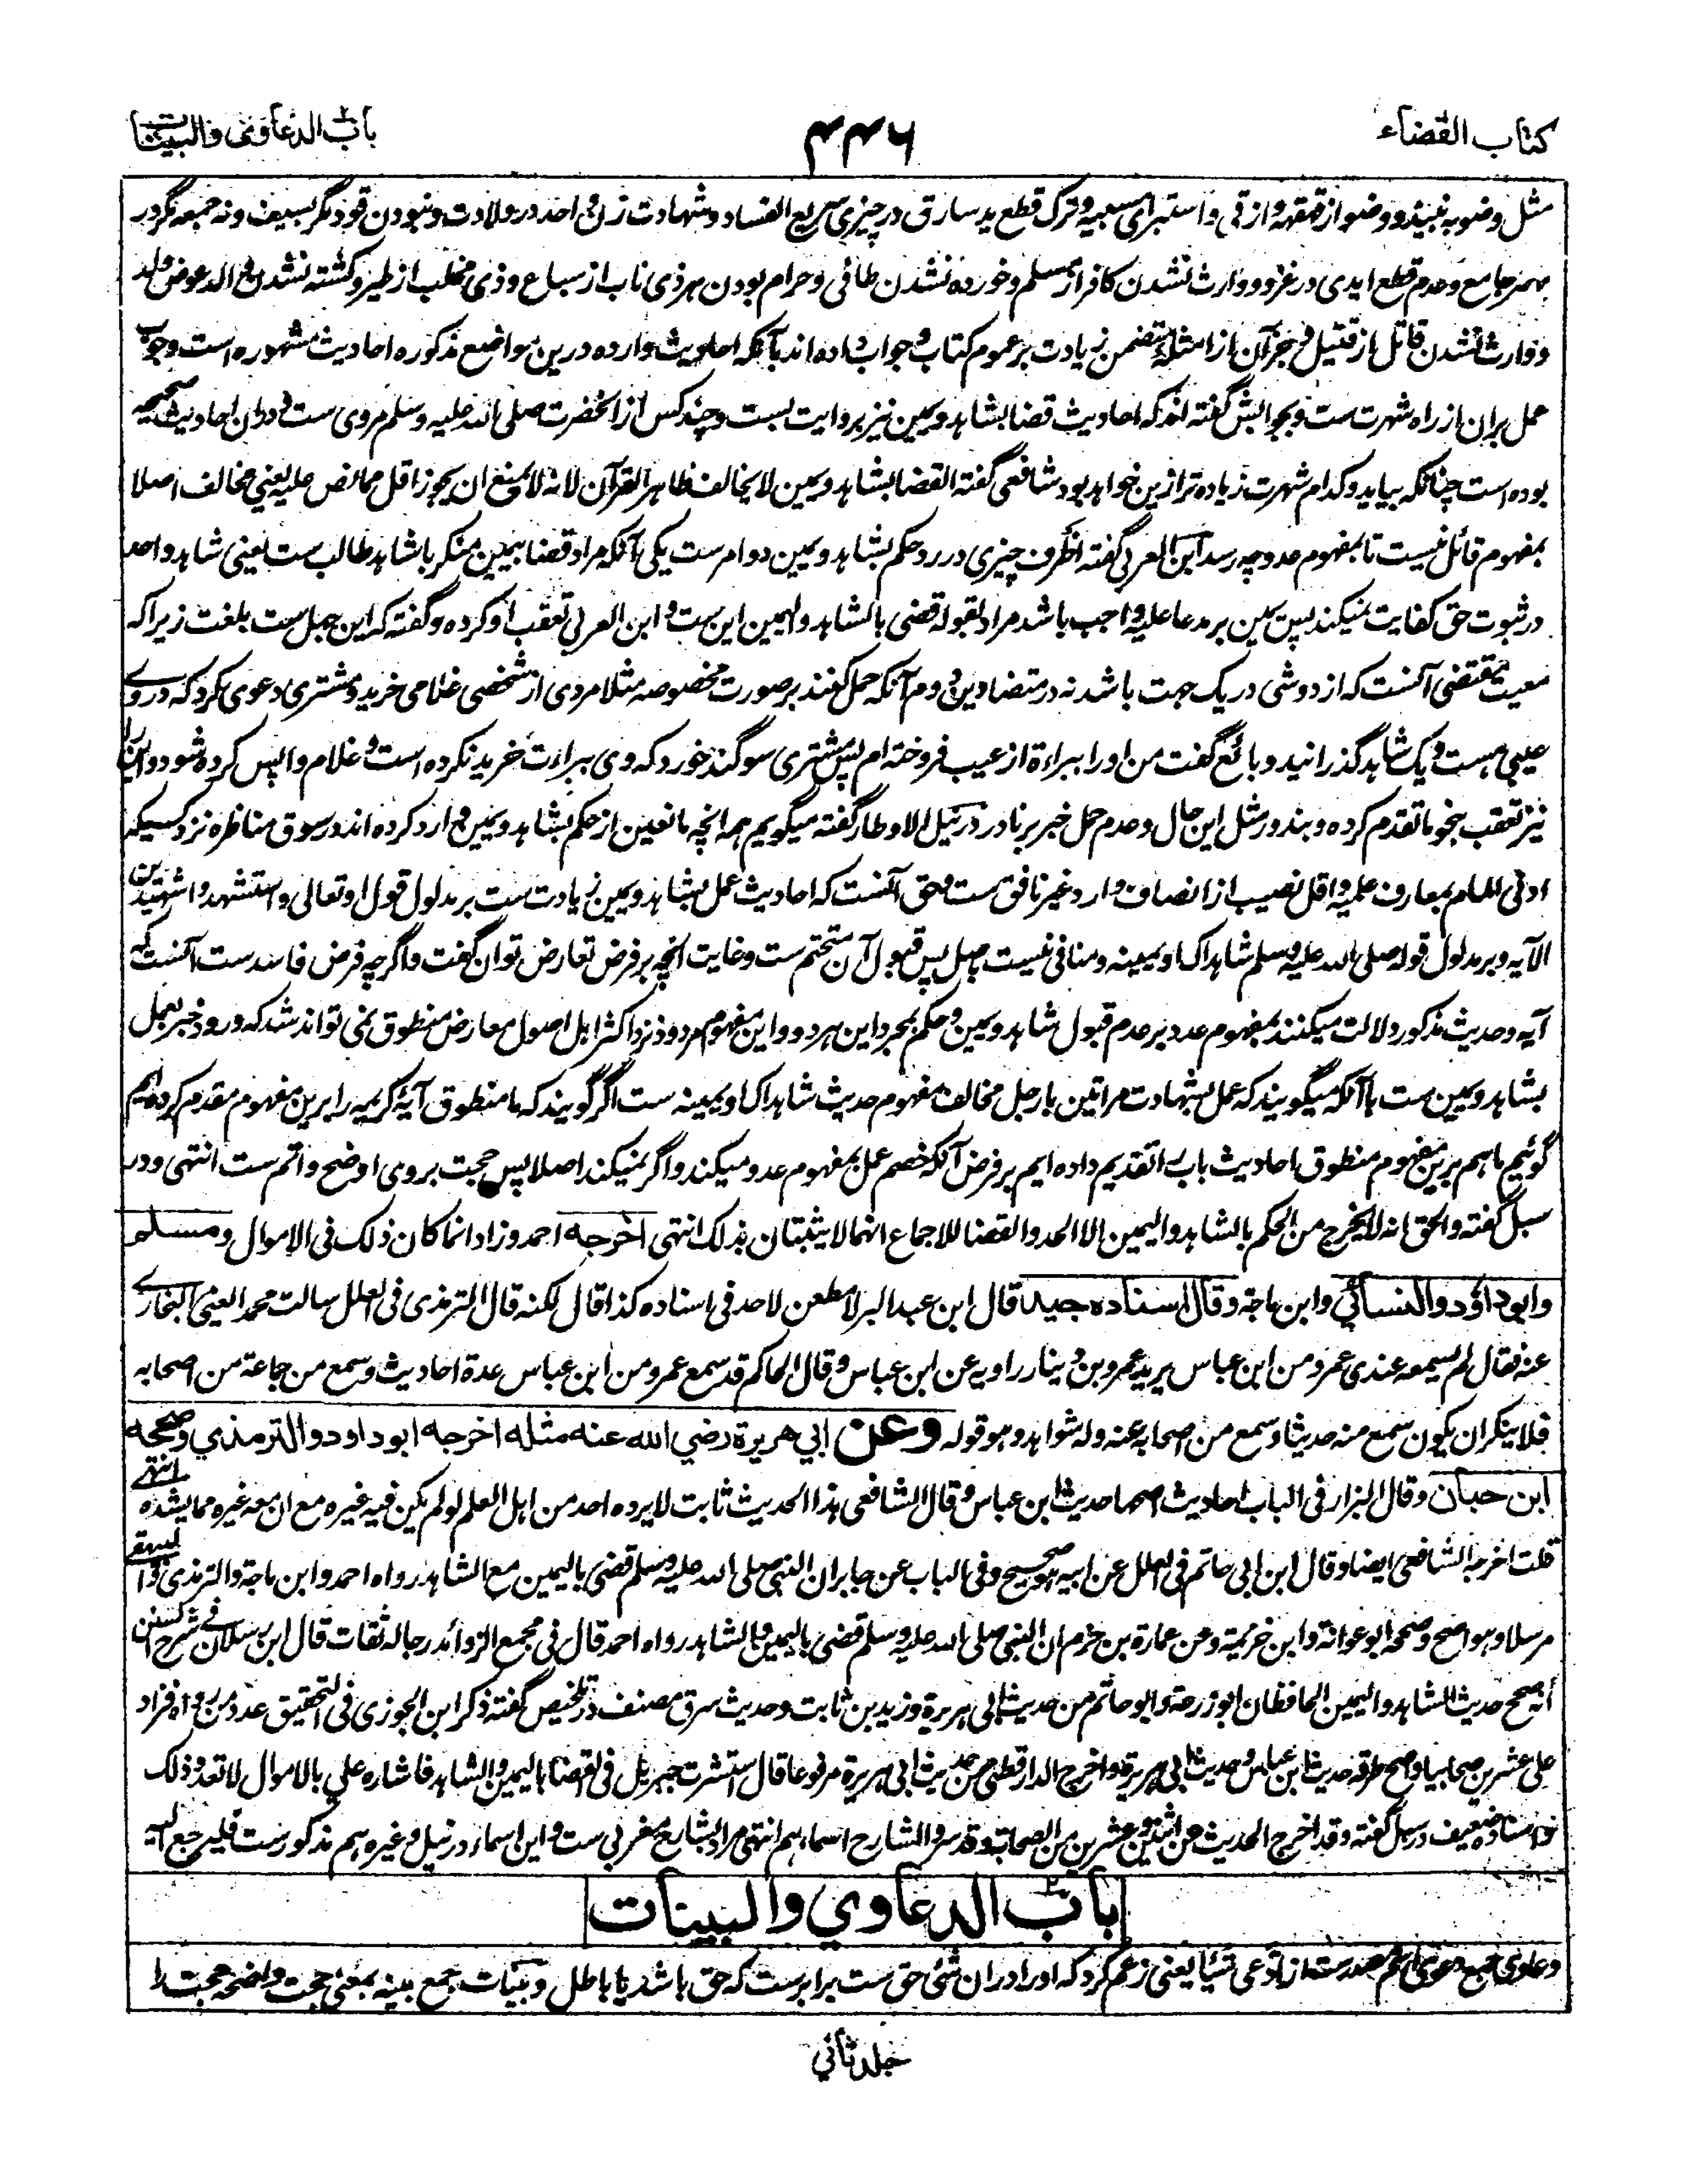 کتاب القضاء
۴۴۶
باب الدعاوی والبینات
مثل وضو به نبیذ و وضو از قهقهه و از قی و استبرای مسبیه و ترک قطع ید سارق در چیزی سریع الفساد و شهادت زن واحد در ولادت و نبودن قود مگر بسیف و نه جمعه مگر در
مصر جامع و عدم قطع ایدی در غزو و وارث نشدن کافر از مسلم و خورده نشدن طافی و حرام بودن هر ذی ناب از سباع و ذی مخلب از طیر و کشته نشدن والد عوض ولد
و وارث نشدن قاتل از قتیل و جز آن از امثله متضمن زیادت بر عموم کتاب و جواب داده اند بآنکه احادیث وارده درین مواضع مذکوره احادیث مشهوره است وجوب
عمل بران از راه شهرت ست و بجوابش گفته اند که احادیث قضا بشاهد و یمین نیز بروایت بست و چند کس از آنحضرت صلی الله علیه وسلم مروی ست و دران احادیث صحیحه
بوده است چنانکه بیاید و کدام شهرت زیاده تر ازین خواهد بود شافعی گفته القضا بشاهد و یمین لا یخالف ظاهر القرآن لانه لا یمنع ان یجوز اقل مما نص علیه یعنی مخالف اصلا
بمفهوم قائل نیست تا بمفهوم عدد چه رسد ابن العربی گفته اظرف چیزی در رد حکم بشاهد و یمین دو امر ست یکی آنکه مراد قضا بیمین منکر با شاهد طالب ست یعنی شاهد واحد
در ثبوت حق کفایت نمیکند پس یمین بر مدعا علیه واجب باشد مراد بقوله قضی بالشاهد والیمین این ست و ابن العربی تعقب او کرده و گفته که این جهل ست بلغت زیرا که
معیت مقتضی آنست که از دو شی در یک جهت باشد نه در متضادین دوم آنکه حمل کنند بر صورت مخصوصه مثلا مردی از شخصی غلامی خرید و مشتری دعوی کرد که در وے
عیبی هست و یک شاهد گذرانید و بائع گفت من او را ببراءة از عیب فروخته ام پس مشتری سوگند خورد که وی ببراءت خرید نکرده است و غلام واپس کرده شود و این را
نیز تعقب بنحو ما تقدم کرده و بندور مثل این حال و عدم حمل خبر بر نادر در نیل الاوطار گفته میگویم همه انچه مانعین از حکم بشاهد و یمین وارد کرده اند در سوق مناظره نزد کسیکه
ادنی المام بمعارف علمیه و اقل نصیب از انصاف وارد غیر نافق ست و حق آنست که احادیث عمل بشاهد و یمین زیادت ست بر مدلول قول او تعالی و استشهدوا شهیدین
الآیه و بر مدلول قوله صلی الله علیه وسلم شاهداک او یمینه و منافی نیست باصل پس قبول آن متحتم ست و غایت انچه بر فرض تعارض توان گفت و اگرچه فرض فاسد ست آنست که
آیه و حدیث مذکور دلالت میکنند بمفهوم عدد بر عدم قبول شاهد و یمین و حکم بمجرد این هر دو و این مفهوم مردود نزد اکثر اهل اصول معارض منطوق نمی تواند شد که ورود خبر بعمل
بشاهد و یمین ست با آنکه میگویند که عمل بشهادت مراتین با رجل مخالف مفهوم حدیث شاهداک او یمینه ست اگر گویند که ما منطوق آیه کریمه را برین مفهوم مقدم کرده ایم
گوئیم ما هم برین مفهوم منطوق احادیث باب را تقدیم داده ایم بر فرض آنکه خصم عمل بمفهوم عدد میکند و اگر نمیکند اصلا پس حجت بر وی اوضح و اتم ست انتهی و در
سبل گفته والحق انه لا یخرج من الحکم بالشاهد والیمین الا الحد والقصاص للاجماع انهما لا یثبتان بذلک انتهی اخرجه احمد و زاد انما کان ذلک فی الاموال ومسلم
وابو داؤد والنسائي وابن ماجة وقال اسناده جيد قال ابن عبد البر لا مطعن لاحد فی اسناده کذا قال لکنه قال الترمذی فی العلل سالت محمدا یعنی البخارے
عنه فقال لم یسمعه عندی عمرو من ابن عباس یرید عمرو بن دینار راویه عن ابن عباس وقال الحاکم قد سمع عمرو من ابن عباس عدة احادیث وسمع من جماعة من اصحابه
فلا ینکر ان یکون سمع منه حدیثا وسمع من اصحابه عنه وله شواهد وهو قوله وعن ابي هريرة رضي الله عنه مثله اخرجه ابو داود والترمذي وصححه
ابن حبان وقال البزار فی الباب احادیث اصحها حدیث ابن عباس وقال الشافعی هذا الحدیث ثابت لا یرده احد من اهل العلم لو لم یکن فیه غیره مع ان معه غیره مما یشده انتهى
قلت اخرجه الشافعی ایضا وقال ابن ابی حاتم فی العلل عن ابیه هو صحیح وفی الباب عن جابر ان النبی صلی الله علیه وسلم قضی بالیمین مع الشاهد رواه احمد وابن ماجة والترمذی والبیهقی
مرسلا وهو اصح وصححه ابو عوانة وابن خزیمة وعن عمارة بن حزم ان النبی صلی الله علیه وسلم قضی بالیمین والشاهد رواه احمد قال فی مجمع الزوائد رجاله ثقات قال ابن رسلان فی شرح السنن
انه صحح حدیث الشاهد والیمین الحافظان ابو زرعة وابو حاتم من حدیث ابی هریرة وزید بن ثابت وحدیث سرق مصنف در تلخیص گفته ذکر ابن الجوزی فی التحقیق عدد من رواه فزاد
علی عشرین صحابیا واصح طرقه حدیث ابن عباس وحدیث ابی هریرة واخرج الدارقطنی من حدیث ابی هریرة مرفوعا قال استشرت جبریل فی القضا بالیمین والشاهد فاشار علی بالاموال لا تعدو ذلک
واسناده ضعیف در سبل گفته وقد اخرج الحدیث عن اثنین وعشرین من الصحابة وقد سرد الشارح اسماءهم انتهی مراد بشارح مغربی ست و این اسماء در نیل وغیره هم مذکورست فلیرجع الیه
باب الدعاوي والبينات
دعاوی جمع دعوی اسم مصدرست از ادعی شیئا یعنی زعم کرد که او را دران شئ حق ست برابرست که حق باشد یا باطل و بینات جمع بینه بمعنی حجت واضحه حجت را
جلد ثاني